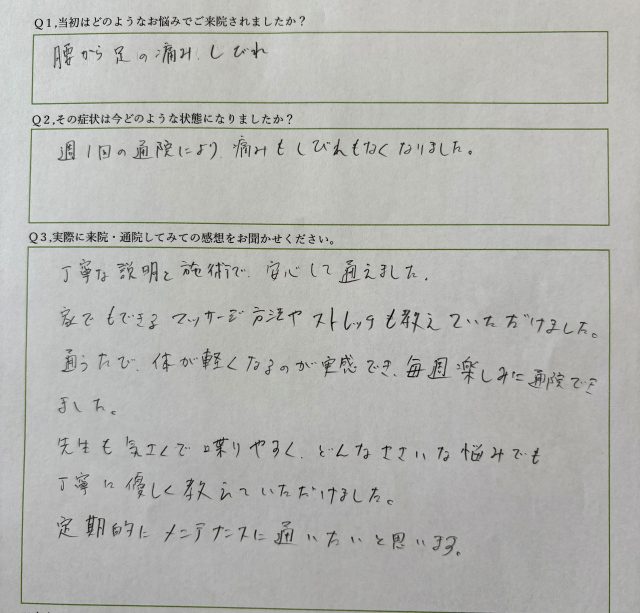 Q1,当初はどのようなお悩みでご来院されましたか？
腰から足の痛み、しびれ
Q2,その症状は今どのような状態になりましたか？
週1回の通院により、痛みもしびれもなくなりました。
Q3,実際に来院・通院してみての感想をお聞かせください。
丁寧な説明と施術で、安心して通えました。
家でもできるマッサージ方法やストレッチも教えていただけました。
通うたび、体が軽くなるのが実感でき、毎週楽しみに通院でき
ました。
先生も気さくで喋りやすく、どんなささいな悩みでも
丁寧に優しく教えていただけました。
定期的にメンテナンスに通いたいと思います。